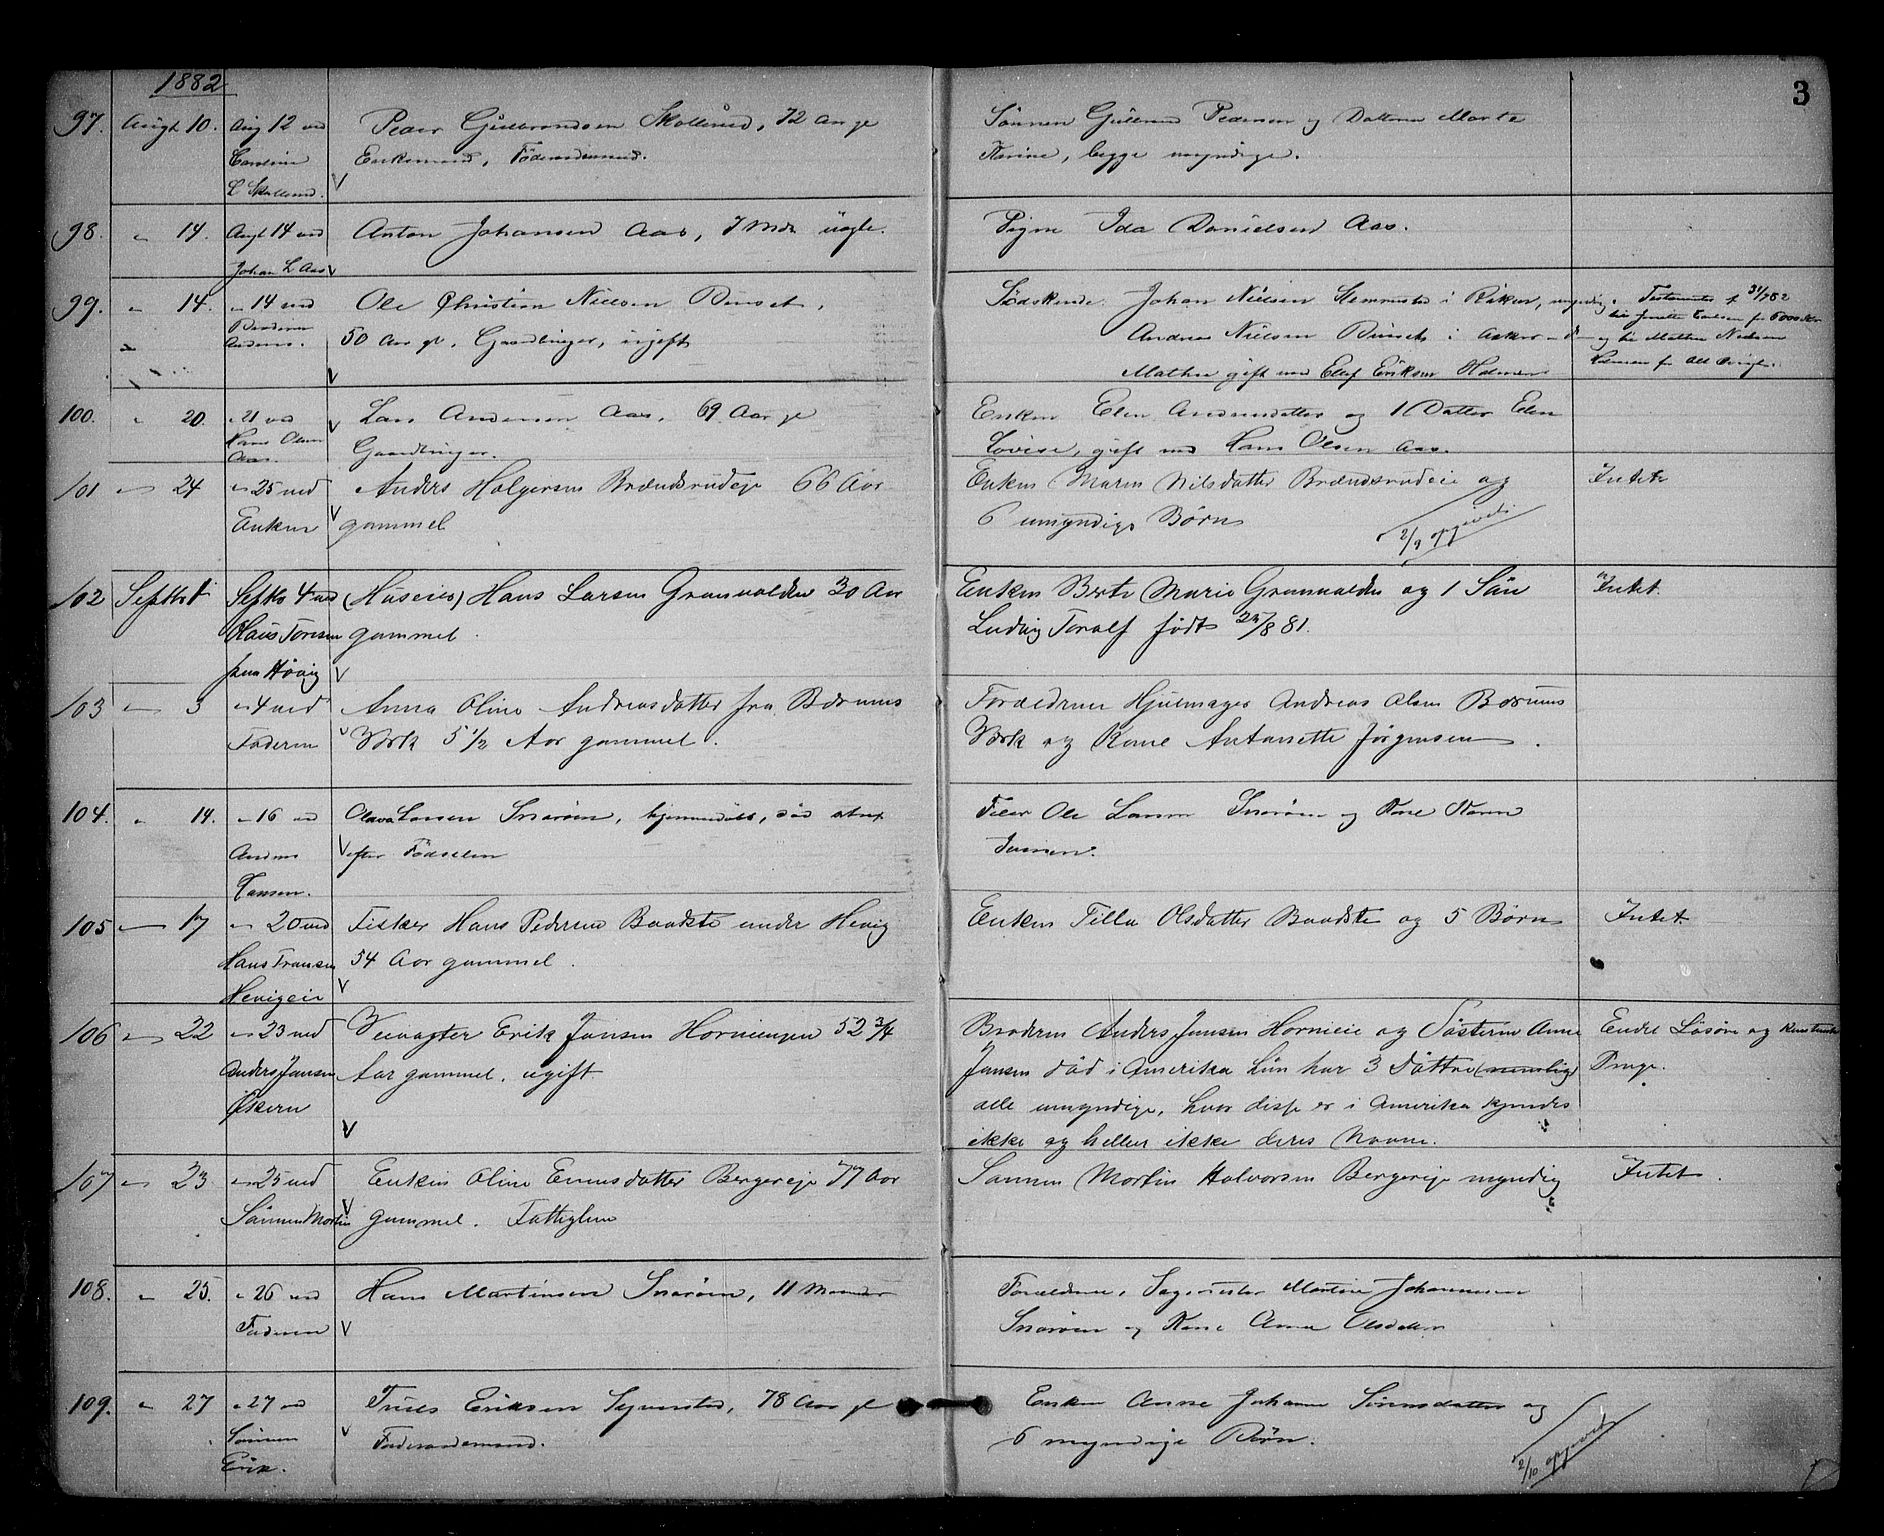 1882
3
97. Augt 10. Aug 12 ved Peder Gulbrandsen Skollerud, 72 Aar gl Sønnen Gulbrand Pedersen og Datteren Marte
Enkemand, Føderaadsmand. Karine, begge myndige.
L Skollerud.
98. " 14. Augt 14 ved Anton Johansen Aas, 7 Mdr uægte. Pigen Ida Danielsen Aas.
Johan L Aas
99. " 14. " 14 ved Ole Christian Nielsen Søskende. Johan Nielsen i myndig
Broderen 50 Aar gl. Gaardbruger, ugift Andreas Nielsen i Asker
Anders. Mathea gift med Ellef Eriksen Holmen
100. " 20. " 21 ved Lars Andersen Aas, 69 Aar gl Enken Elen Andersdatter og 1 Datter Elen
Hans Olsen Gaardbruger. Lovise, gift med Hans Olsen Aas.
Aas.
101 " 24 " 25 ved Anders Holgersen Brændsrudeje 66 Aar Enken Maren Nilsdatter Brændsrudeie og Intet
Enken gammel 6 umyndige Børn
2/9 opgivet.
102 Septbr 1 Septbr 4 ved (Huseier) Hans Larsen Grønvolden 30 Aar Enken Berte Marie Grønvolden og 1 Søn Intet.
Olaus Toresen gammel. Ludvig Toralf født 25/8 81.
fra Høvig
103 " 3 " 4 ved Anna Oline Andreasdatter fra Bærums Forældrene Hjulmager Andreas Olsen Bærums
Faderen Værk 5 1/2 Aar gammel. Værk og Kone Antonette Jørgensen.
104. " 14. " 16 ved Olava Larsen Snarøen, hjemmedøbt, død strax Fisker Ole Larsen Snarøen og Kone Karen
Anders efter Fødselen Jensen.
Hansen.
105 " 17 " 20 ved Fisker Hans Pedersen Baadstø under Hevig Enken Tilla Olsdatter Baadstø og 5 Børn Intet
Hans Fransen 54 Aar gammel.
Hevigeie
106 " 22 " 23 ved Veivogter Erik Jansen Horniengen 52 3/4 Broderen Anders Jansen Hornieie og Søsteren Anne Endel Løsøre og
Anders Jansen Aar gammel. ugift Jansen død i Amerika hun har 3 Døttre (nemlig) Penge.
Øskern alle umyndige, hvor disse er i Amerika kjendes
ikke og heller ikke deres Navne.
107 " 23 " 25 ved Enken Oline Evensdatter Bergereje 77 Aar Sønnen Martin Halvorsen Bergereje myndig Intet.
Sønnen Martin gammel. Fattiglem
108. " 25. " 26 ved Hans Martinsen Snarøen, 11 Maaneder Forældrene, Martin Johannesen
Faderen Snarøen og Kone Anna Olsdatter
109. " 27 " 27 ved Truls Eriksen 78 Aar gl Enken Anne Johanne Sørensdatter og
Sønnen Føderaadsmand. 6 myndige Børn.
Erik. 2/10 opgivet